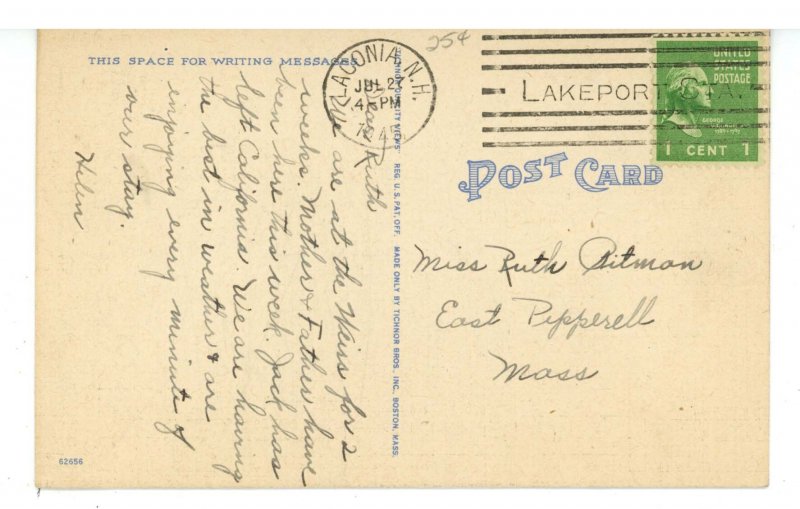 THIS SPACE FOR WRITING MESSAGES
Dear Ruth
We are at the Weirs for 2
weeks. Mother & Father have
been here this week. Jack has
left California. We are having
the best in weather & are
enjoying every minute of
our stay.
Helen
62656
"TICHNOR QUALITY VIEWS" REG. U. S. PAT. OFF. MADE ONLY BY TICHNOR BROS., INC., BOSTON, MASS.
25¢
LACONIA, N.H.
JUL 27
4 PM
LAKEPORT STA.
UNITED
STATES
POSTAGE
GEORGE
WASHINGTON
1789-1797
1 CENT 1
POST CARD
Miss Ruth Pitman
East Pepperell
Mass